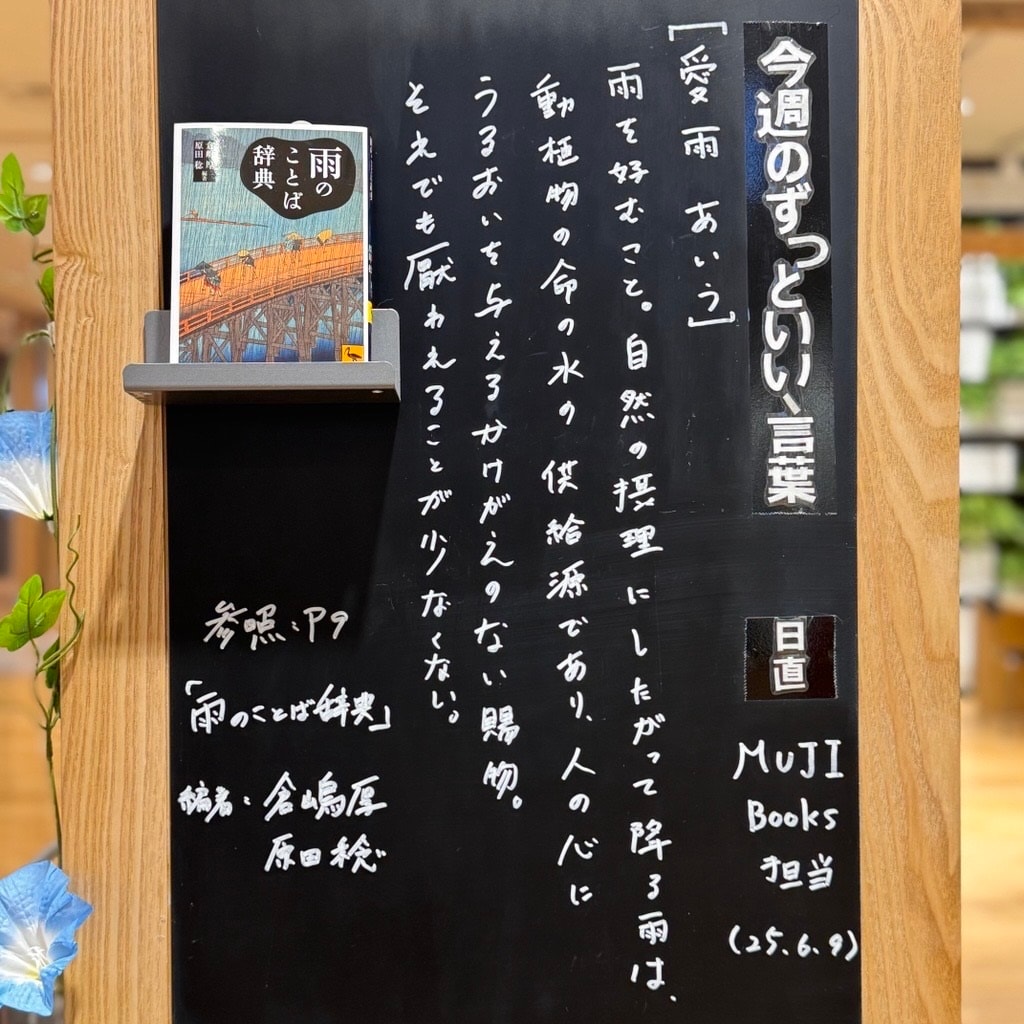 今週のずっといい、言葉
日直
MUJI
Books
担当
(25.6.9)
[愛雨 あいう]
雨を好むこと。自然の摂理にしたがって降る雨は、
動植物の命の水の供給源であり、人の心に
うるおいを与えるかけがえのない賜物。
それでも厭われることが少なくない。
雨の
ことば
辞典
倉嶋 厚
原田 稔 編著
参照:P9
「雨のことば辞典」
編者:倉嶋厚
原田稔